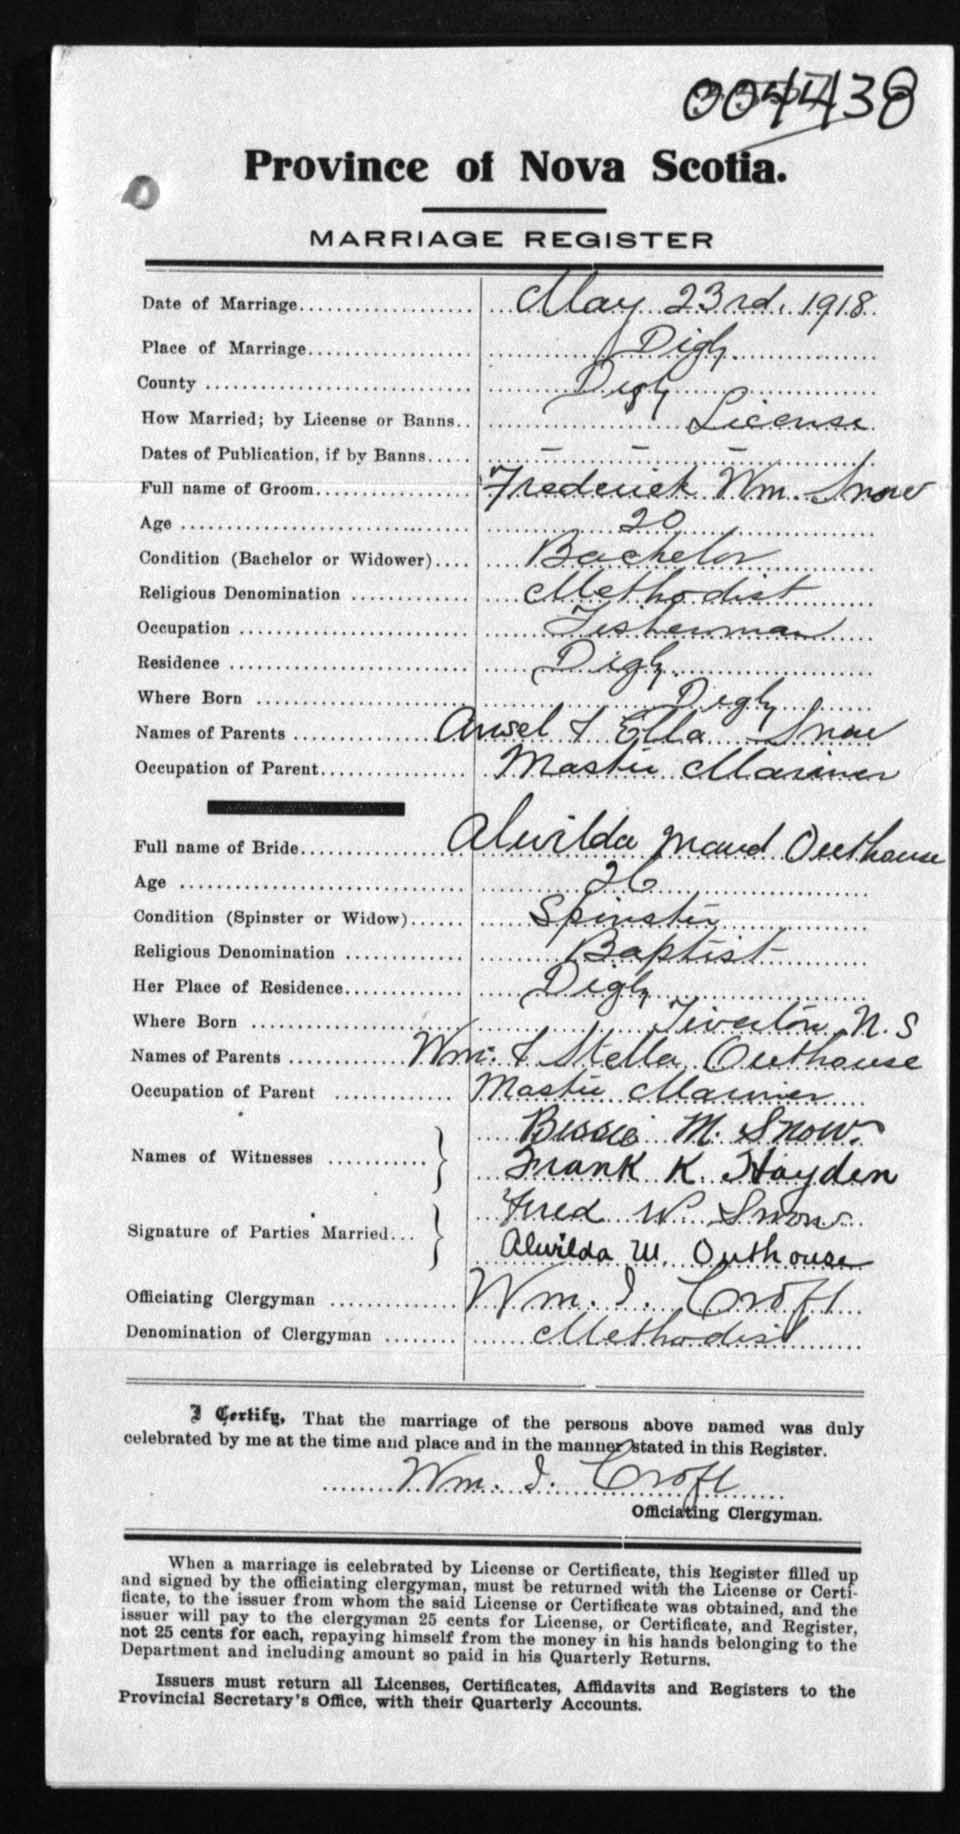 004438
Province of Nova Scotia.
MARRIAGE REGISTER
Date of Marriage May 23rd. 1918
Place of Marriage Digby
County Digby
How Married; by License or Banns License
Dates of Publication, if by Banns — — —
Full name of Groom Frederick Wm. Snow
Age 20
Condition (Bachelor or Widower) Bachelor
Religious Denomination Methodist
Occupation Fisherman
Residence Digby
Where Born Digby
Names of Parents Ansel & Ella Snow
Occupation of Parent Master Mariner
Full name of Bride Alwilda Maud Outhouse
Age 26
Condition (Spinster or Widow) Spinster
Religious Denomination Baptist
Her Place of Residence Digby
Where Born Tiverton N.S
Names of Parents Wm. & Stella Outhouse
Occupation of Parent Master Mariner
Names of Witnesses Bessie M. Snow.
Frank K. Hayden
Signature of Parties Married Fred W. Snow
Alwilda M. Outhouse
Officiating Clergyman Wm. I. Croft
Denomination of Clergyman Methodist
I Certify, That the marriage of the persons above named was duly
celebrated by me at the time and place and in the manner stated in this Register.
Wm. I. Croft
Officiating Clergyman.
When a marriage is celebrated by License or Certificate, this Register filled up
and signed by the officiating clergyman, must be returned with the License or Certi-
ficate, to the issuer from whom the said License or Certificate was obtained, and the
issuer will pay to the clergyman 25 cents for License, or Certificate, and Register,
not 25 cents for each, repaying himself from the money in his hands belonging to the
Department and including amount so paid in his Quarterly Returns.
Issuers must return all Licenses, Certificates, Affidavits and Registers to the
Provincial Secretary's Office, with their Quarterly Accounts.